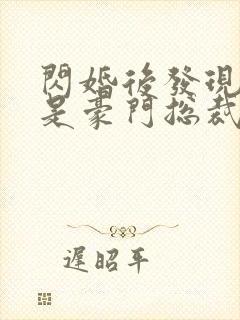 閃婚後發現
是豪門總裁
遲昭平